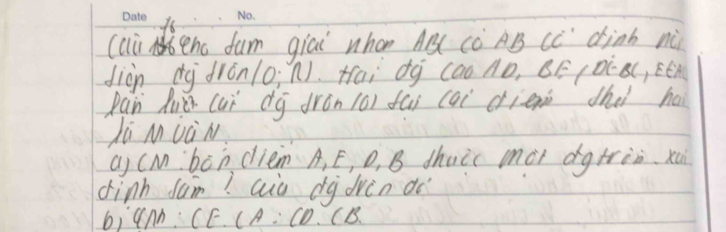 Date No.
Câu 16 cho tam giác nhọn ABC có AB cố định nội
tiếp đg tròn (O; R). Hai đg cao AD, BE (D∈BC, E∈AC
lần lượt cắt đg tròn (O) tại các điểm thứ hai
là M và N
a) CM: bốn điểm A, E, D, B thuộc một đg tròn. xác
định tâm I của đg tròn đó
b) CM: CE. CA = CD. CB.